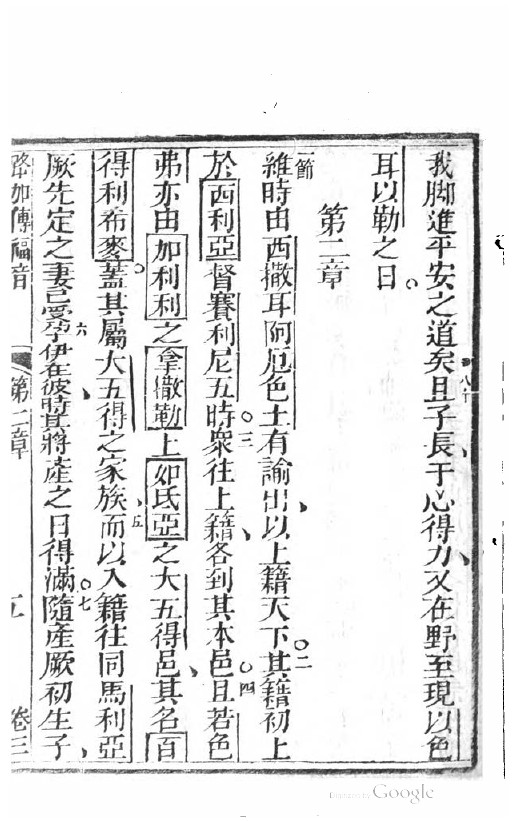 我脚進平安之道矣八十且子長于心得力又在野至現以色
耳以勒之日
第二章
一節
維時由西撒耳阿厄色土有諭出以上籍天下二其籍初上
於西利亞督賽利尼五時三衆往上籍各到其本邑四且若色
弗亦由加利利之拿撒勒上如氐亞之大五得邑其名百
得利希麥蓋其屬大五得之家族五而以入籍往同馬利亞
厥先定之妻已受孕六伊在彼時其將產之日得滿七隨產厥初生子
路加傳福音 第二章 卷三
Digitized by Google